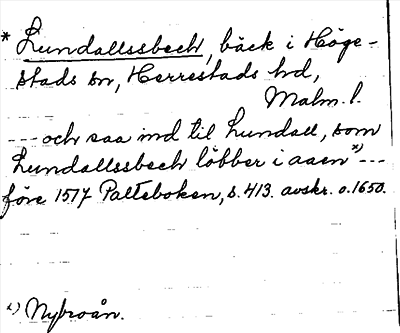 * Lundallssbech, bäck i Höge-
stads sn, Herrestads hd,
Malm. l.
--- och saa ind til Lundall, som
Lundallssbech löbber i aaen x) ---
före 1517 Palteboken, s. 413. avskr. o. 1650.
x) Nybroån.